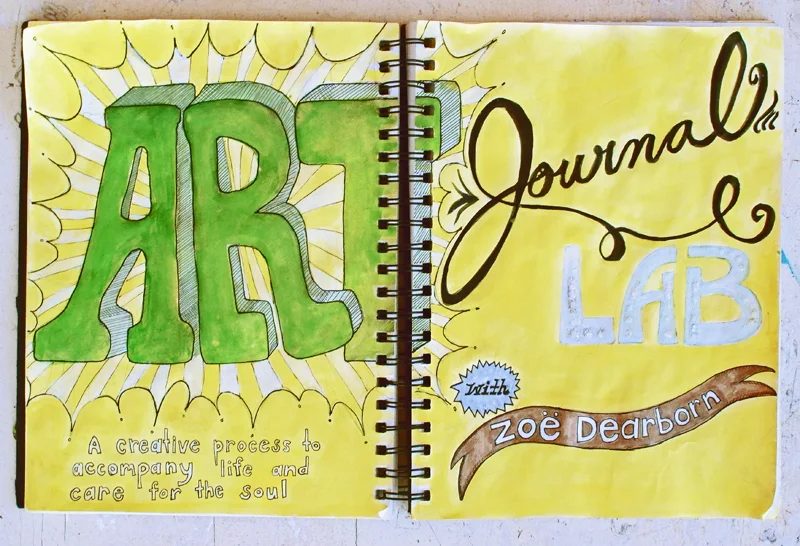 ART
Journal
LAB
with
Zoë Dearborn
A creative process to
accompany life and
care for the soul